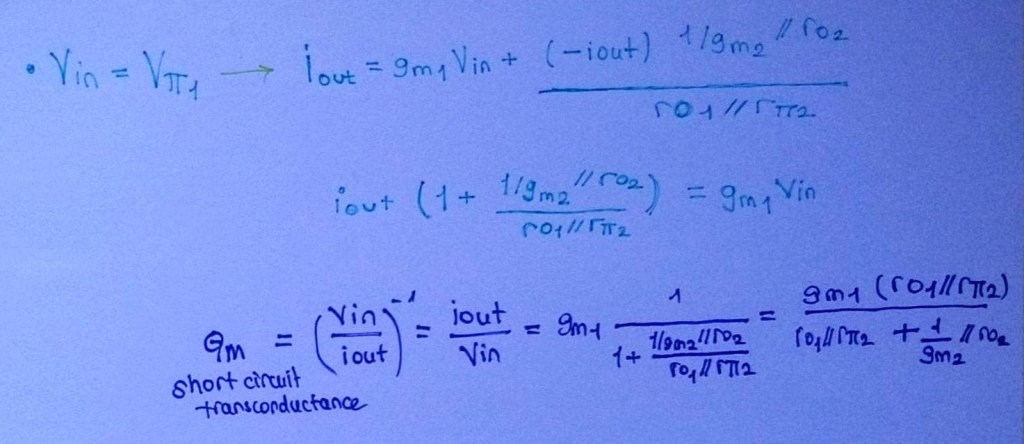 • Vin = Vπ1 → iout = gm1 Vin + (-iout) 1/gm2 // ro2 / ro1 // rπ2
iout (1 + 1/gm2 // ro2 / ro1 // rπ2) = gm1 Vin
gm = (Vin / iout)^-1 = iout / Vin = gm1 1 / 1 + 1/gm2 // ro2 / ro1 // rπ2 = gm1 (ro1 // rπ2) / ro1 // rπ2 + 1/gm2 // ro2
short circuit
transconductance